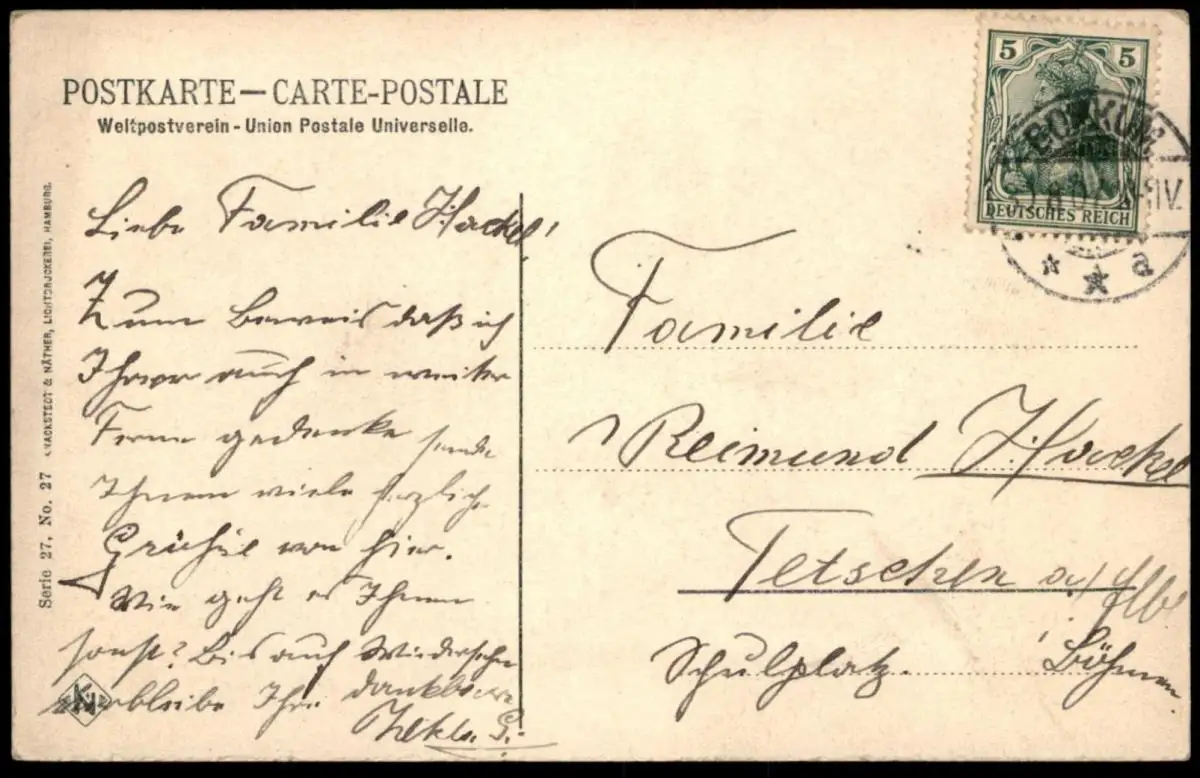 POSTKARTE — CARTE-POSTALE
Weltpostverein - Union Postale Universelle.
5 5
DEUTSCHES REICH
BORKUM
a
Serie 27, No. 27 KNACKSTEDT & NÄTHER, LICHTDRUCKEREI, HAMBURG.
Liebe Familie Hackel!
Zum Beweis daß ich
Ihrer auch in weiter
Ferne gedenke sende
Ihnen viele herzliche
Grüße von hier.
Wie geht es Ihnen
sonst? Bis auf Wiedersehn
verbleibe Ihre dankbare
G.
Familie
Reimund Hackel
Tetschen a/ Elbe
Schulplatz. Böhmen